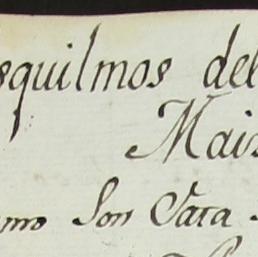 squilmos del
Mais
mo Son Cara